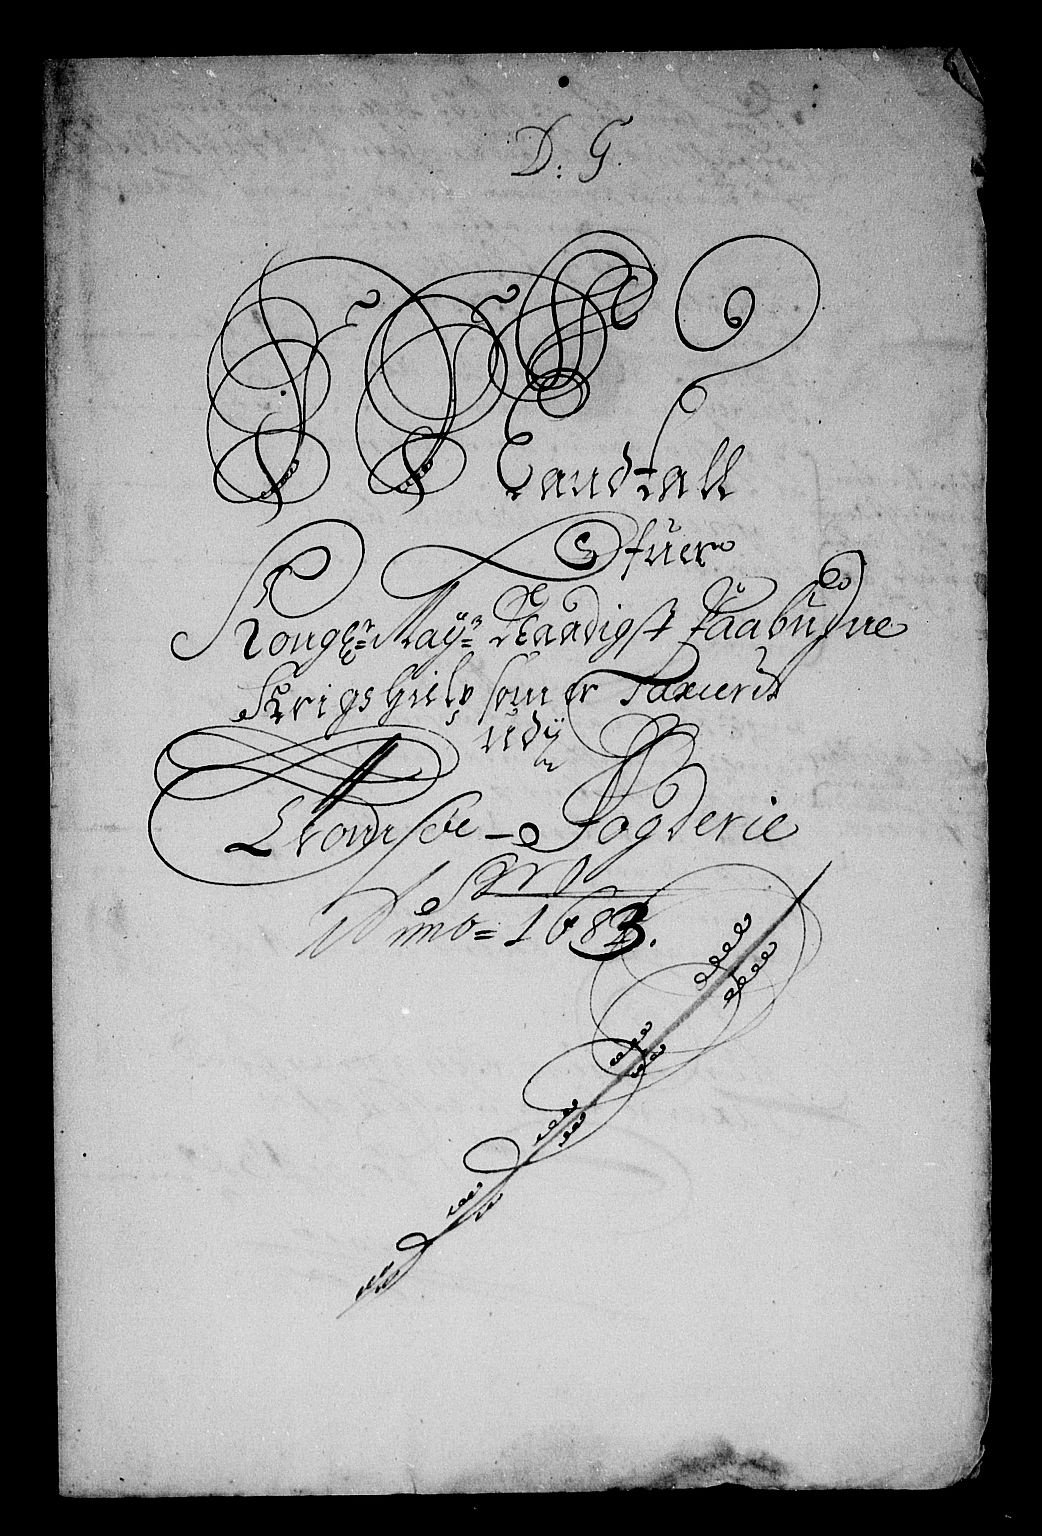 D: G.
Mandtall
Ofuer
Kongl: Maÿ: Naadigst Paabudne
Krigs Hielp som er Taxerit
udÿ
Tromsøe Fogderie
Pro
Anno = 1683.